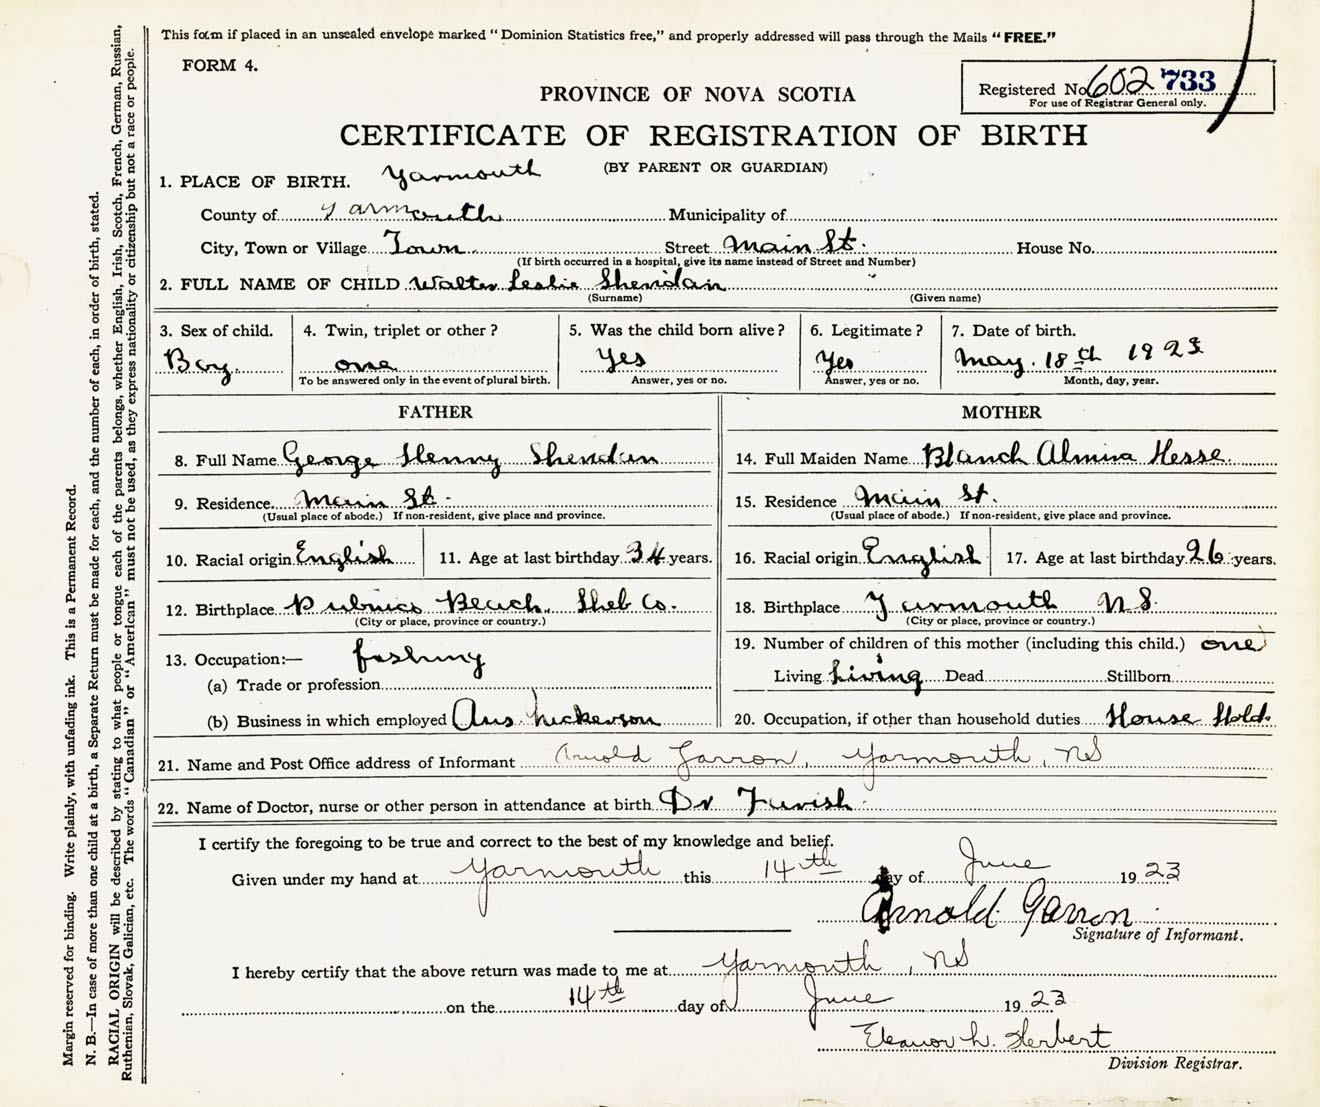 This form if placed in an unsealed envelope marked "Dominion Statistics free," and properly addressed will pass through the Mails "FREE."
FORM 4.
Registered No. 602 733
For use of Registrar General only.
PROVINCE OF NOVA SCOTIA
CERTIFICATE OF REGISTRATION OF BIRTH
(BY PARENT OR GUARDIAN)
1. PLACE OF BIRTH. Yarmouth
County of Yarmouth Municipality of
City, Town or Village Town Street Main St. House No.
(If birth occurred in a hospital, give its name instead of Street and Number)
2. FULL NAME OF CHILD Walter Leslie Sheridan
(Surname) (Given name)
3. Sex of child. 4. Twin, triplet or other? 5. Was the child born alive? 6. Legitimate? 7. Date of birth.
Boy. one Yes Yes May. 18th 1923
To be answered only in the event of plural birth. Answer, yes or no. Answer, yes or no. Month, day, year.
FATHER
8. Full Name George Henny Sheridan
9. Residence. Main St.
(Usual place of abode.) If non-resident, give place and province.
10. Racial origin English 11. Age at last birthday 34 years.
12. Birthplace Pubnico Beach. Shelb Co.
(City or place, province or country.)
13. Occupation:— fishing
(a) Trade or profession
(b) Business in which employed Ans. Nickerson
MOTHER
14. Full Maiden Name Blanch Almira Hesse.
15. Residence Main St.
(Usual place of abode.) If non-resident, give place and province.
16. Racial origin English 17. Age at last birthday 26 years.
18. Birthplace Yarmouth NS.
(City or place, province or country.)
19. Number of children of this mother (including this child.) one
Living Living Dead Stillborn
20. Occupation, if other than household duties House Hold.
21. Name and Post Office address of Informant Arnold Garron, Yarmouth, NS
22. Name of Doctor, nurse or other person in attendance at birth Dr Furish
I certify the foregoing to be true and correct to the best of my knowledge and belief.
Given under my hand at Yarmouth this 14th day of June 1923
Arnold Garron
Signature of Informant.
I hereby certify that the above return was made to me at Yarmouth, NS
on the 14th day of June 1923
Eleanor h. Herbert
Division Registrar.
Margin reserved for binding. Write plainly, with unfading ink. This is a Permanent Record.
N. B.—In case of more than one child at a birth, a Separate Return must be made for each, and the number of each, in order of birth, stated.
RACIAL ORIGIN will be described by stating to what people or tongue each of the parents belongs, whether English, Irish, Scotch, French, German, Russian,
Ruthenian, Slovak, Galician, etc. The words "Canadian" or "American" must not be used, as they express nationality or citizenship but not a race or people.